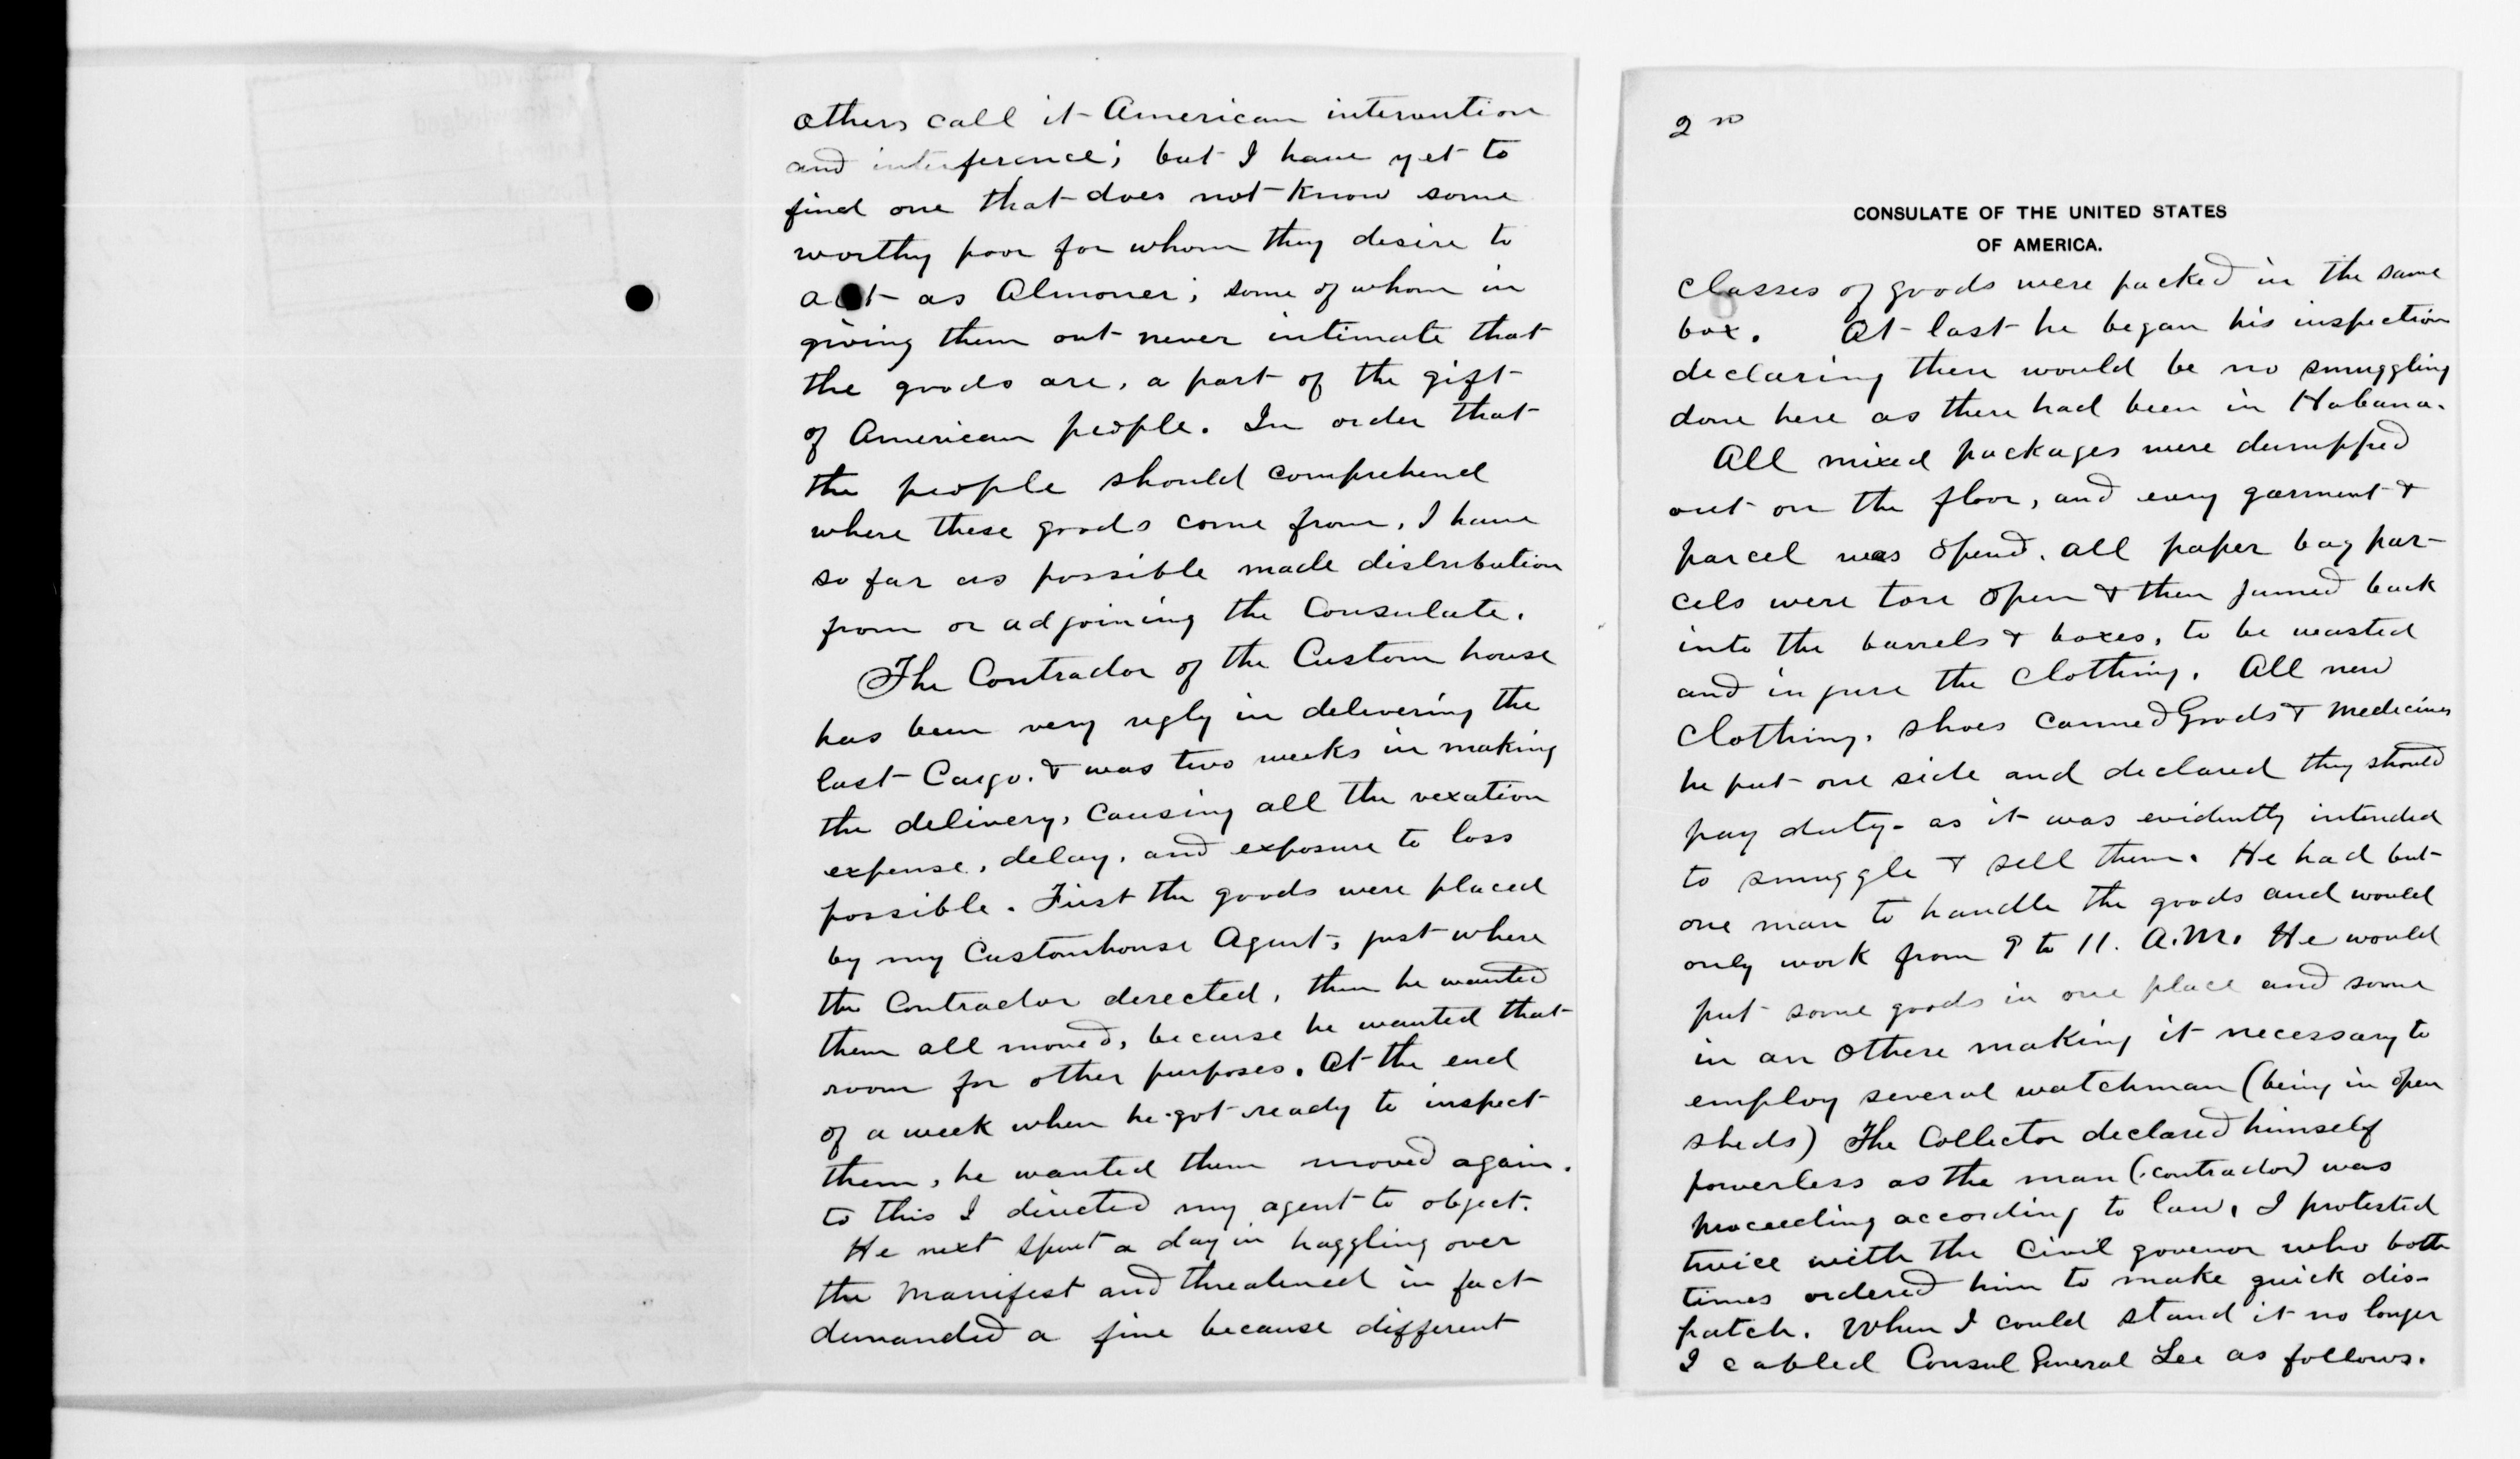 others call it American intervention
and interference; but I have yet to
find one that does not know some
worthy poor for whom they desire to
act as Almoner; some of whom in
giving them out never intimate that
the goods are, a part of the gift
of American people. In order that
the people should comprehend
where these goods come from, I have
so far as possible made distribution
from or adjoining the Consulate.
The Contrador of the Custom house
has been very ugly in delivering the
last Cargo. & was two weeks in making
the delivery, causing all the vexation
expense, delay, and exposure to loss
possible. First the goods were placed
by my Customhouse Agent, just where
the Contrador derected, then he wanted
them all moved, because he wanted that
room for other purposes. At the end
of a week when he got ready to inspect
them, he wanted them moved again.
to this I directed my agent to object.
He next spent a day in haggling over
the Manifest and threatened in fact
demanded a fine because different
2nd
CONSULATE OF THE UNITED STATES
OF AMERICA.
Classes of goods were packed in the same
box. At last he began his inspection
declaring there would be no smuggling
done here as there had been in Habana.
All mixed packages were dumpped
out on the floor, and every garment &
parcel was opend. all paper bag par-
cels were tore open & then jamed back
into the barrels & boxes, to be wasted
and injure the clothing. All new
Clothing, shoes canned Goods & Medicines
he put one side and declared they should
pay duty- as it was evidently intended
to smuggle & sell them. He had but
one man to handle the goods and would
only work from 9 to 11. A.M. He would
put some goods in one place and some
in an othere making it necessary to
employ several watchman (being in open
sheds) The Collector declared himself
powerless as the man (contrador) was
proceeding according to law, I protested
twice with the Civil govenor who both
times ordered him to make quick dis-
patch. When I could stand it no longer
I cabled Consul General Lee as follows.